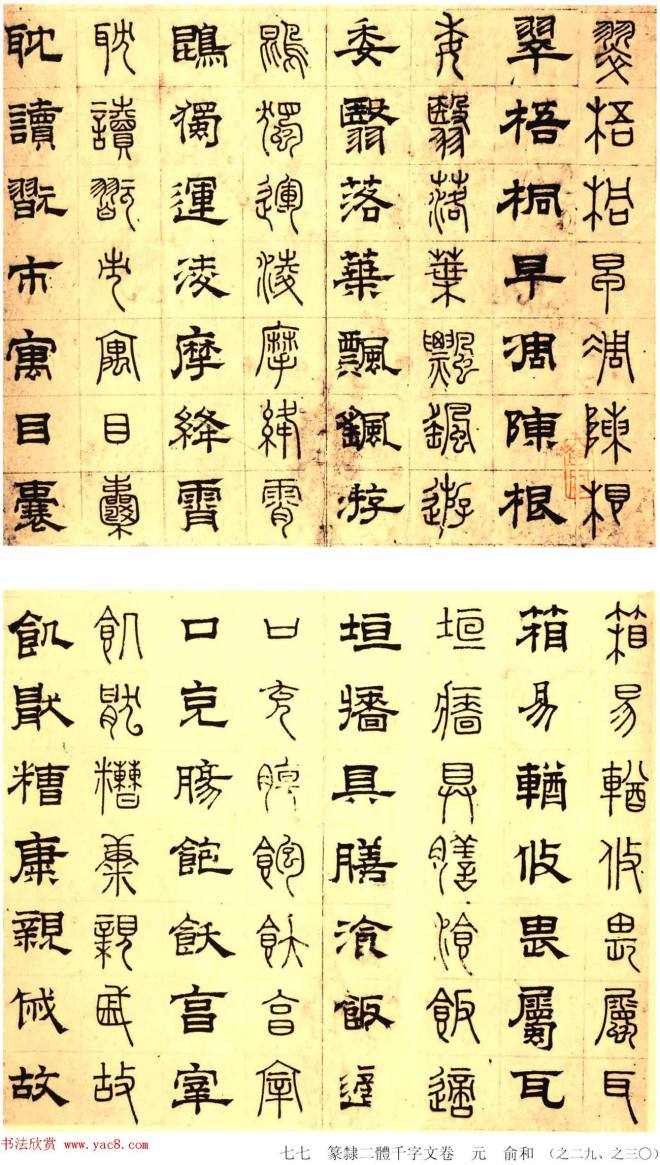 翠梧桐早凋陳根
翠梧桐早凋陳根
委翳落葉飄颻游
委翳落葉飄颻游
鵾獨運淩摩絳霄
鵾獨運淩摩絳霄
耽讀翫市寓目囊
耽讀翫市寓目囊
箱易輶攸畏屬耳
箱易輶攸畏屬耳
垣牆具膳湌飯適
垣牆具膳湌飯適
口充腸飽飫亯宰
口充腸飽飫亯宰
飢猒糟康親戚故
飢猒糟康親戚故
书法欣赏 www.yac8.com
七七 篆隸二體千字文卷 元 俞和 (之二九、之三〇)